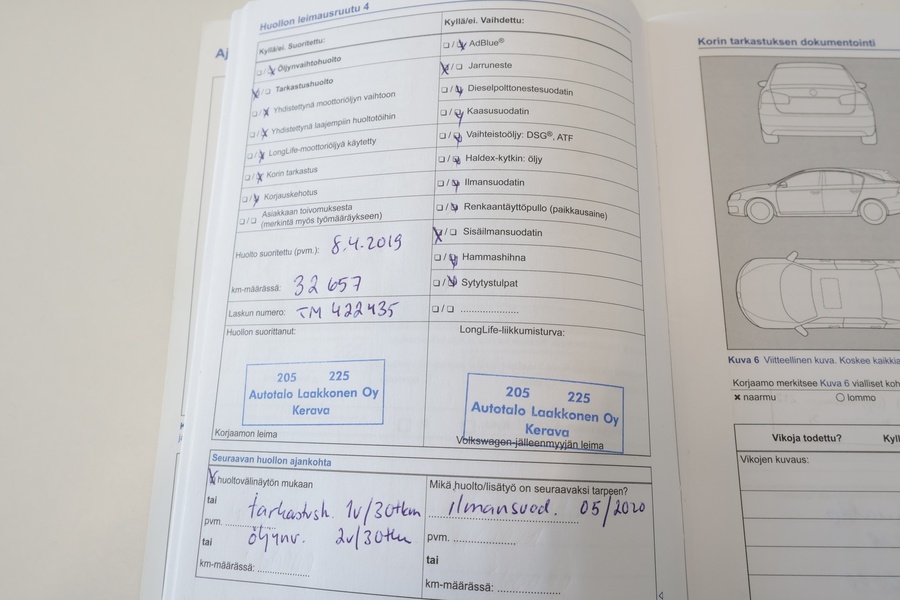 Aj
Huollon leimausruutu 4
Kyllä/ei. Suoritettu:
Öljynvaihtohuolto
Tarkastushuolto
Yhdistettynä moottoriöljyn vaihtoon
Yhdistettynä laajempiin huoltotöihin
LongLife-moottoriöljyä käytetty
Korin tarkastus
Korjauskehotus
Asiakkaan toivomuksesta
(merkintä myös työmääräykseen)
Huolto suoritettu (pvm.): 8.4.2019
km-määrässä: 32 657
Laskun numero: TM 422435
Huollon suorittanut:
205 225
Autotalo Laakkonen Oy
Kerava
Korjaamon leima
Kyllä/ei. Vaihdettu:
AdBlue®
Jarruneste
Dieselpolttonestesuodatin
Kaasusuodatin
Vaihteistoöljy: DSG®, ATF
Haldex-kytkin: öljy
Ilmansuodatin
Renkaantäyttöpullo (paikkausaine)
Sisäilmansuodatin
Hammashihna
Sytytystulpat
LongLife-liikkumisturva:
205 225
Autotalo Laakkonen Oy
Kerava
Volkswagen-jälleenmyyjän leima
Seuraavan huollon ajankohta
huoltovälinäytön mukaan
tai tarkastush. 1v/30tkm
pvm.
tai öljynv. 2v/30tkm
km-määrässä:
Mikä huolto/lisätyö on seuraavaksi tarpeen?
ilmansuod. 05/2020
pvm.
tai
km-määrässä:
Korin tarkastuksen dokumentointi
Kuva 6 Viitteellinen kuva. Koskee kaikkia
Korjaamo merkitsee Kuva 6 vialliset koh
x naarmu O lommo
Vikoja todettu? Kyll
Vikojen kuvaus: